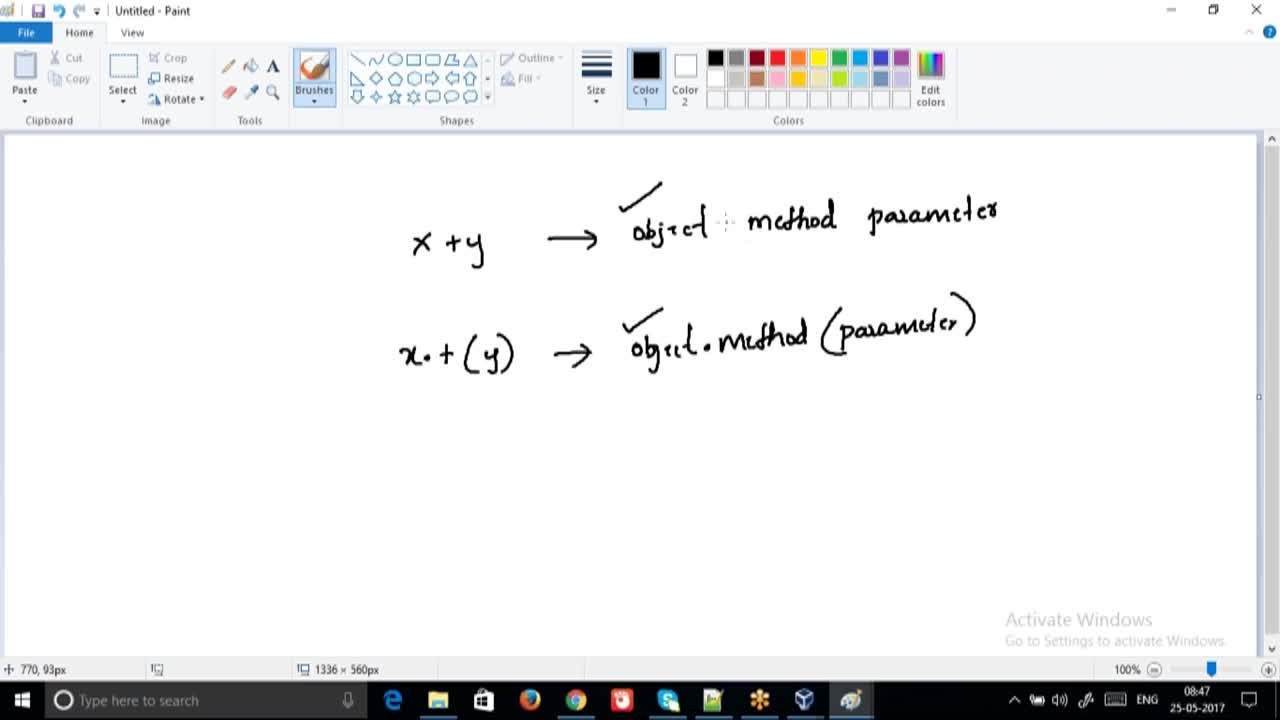 Untitled - Paint
File Home View
Paste
Cut
Copy
Clipboard
Select
Crop
Resize
Rotate
Image
Tools
Brushes
Outline
Fill
Shapes
Size
Color 1
Color 2
Edit colors
Colors
x + y → object method parameter
x. + (y) → object.method (parameter)
Activate Windows
Go to Settings to activate Windows.
770, 93px
1336 × 560px
100%
Type here to search
ENG
08:47
25-05-2017